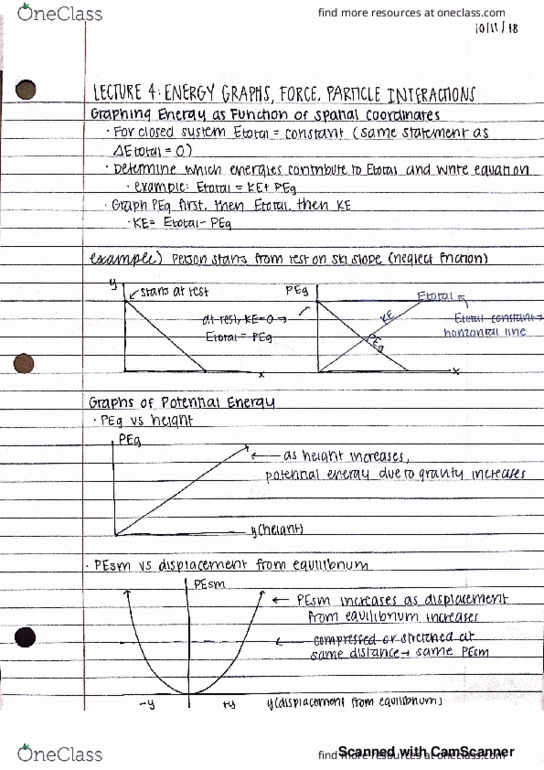 OneClass
find more resources at oneclass.com
10/11/18
LECTURE 4: ENERGY GRAPHS, FORCE, PARTICLE INTERACTIONS
Graphing Energy as Function of spatial coordinates
· For closed system Etotal = constant (same statement as
ΔEtotal = 0)
· Determine which energies contribute to Etotal and write equation
· example: Etotal = KE + PEg
· Graph PEg first, then Etotal, then KE
· KE = Etotal - PEg
example) Person starts from rest on ski slope (neglect friction)
y
starts at rest
x
at rest, KE=0 →
Etotal = PEg
PEg
Etotal
KE
PEg
x
Etotal constant →
horizontal line
Graphs of Potential Energy
· PEg vs height
PEg
← as height increases,
potential energy due to gravity increases
y(height)
· PEsm vs displacement from equilibrium
PEsm
← PEsm increases as displacement
from equilibrium increases
← compressed or stretched at
same distance → same PEsm
-y
+y
y(displacement from equilibrium)
OneClass
find more resources at oneclass.com
Scanned with CamScanner